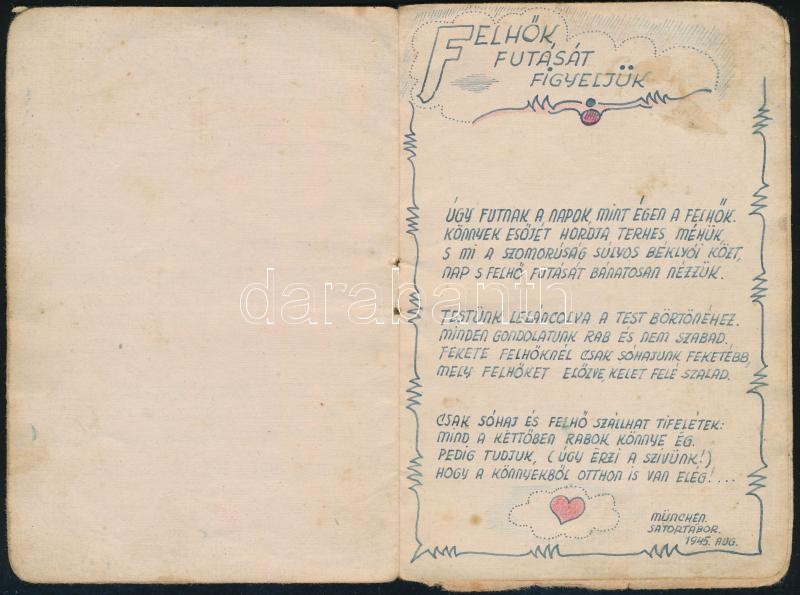 FELHŐK
FUTÁSÁT
FIGYELJÜK
ÚGY FUTNAK A NAPOK, MINT ÉGEN A FELHŐK.
KÖNNYEK ESŐJÉT HORDJA TERHES MÉHÜK
S MI A SZOMORÚSÁG SÚLYOS BÉKLYÓI KÖZT,
NAP S FELHŐ FUTÁSÁT BÁNATOSAN NÉZZÜK.
TESTÜNK LELÁNCOLVA A TEST BÖRTÖNÉHEZ.
MINDEN GONDOLATUNK RAB ÉS NEM SZABAD.
FEKETE FELHŐKNÉL CSAK SÓHAJUNK FEKETÉBB,
MELY FELHŐKET ELŐZVE, KELET FELÉ SZALAD.
CSAK SÓHAJ ÉS FELHŐ SZÁLLHAT TIFELÉTEK:
MIND A KETTŐBEN RABOK KÖNNYE ÉG.
PEDIG TUDJUK, (ÚGY ÉRZI A SZÍVÜNK!)
HOGY A KÖNNYEKBŐL OTTHON IS VAN ELÉG!...
MÜNCHEN.
SÁTORTÁBOR.
1945. AUG.
darabanth